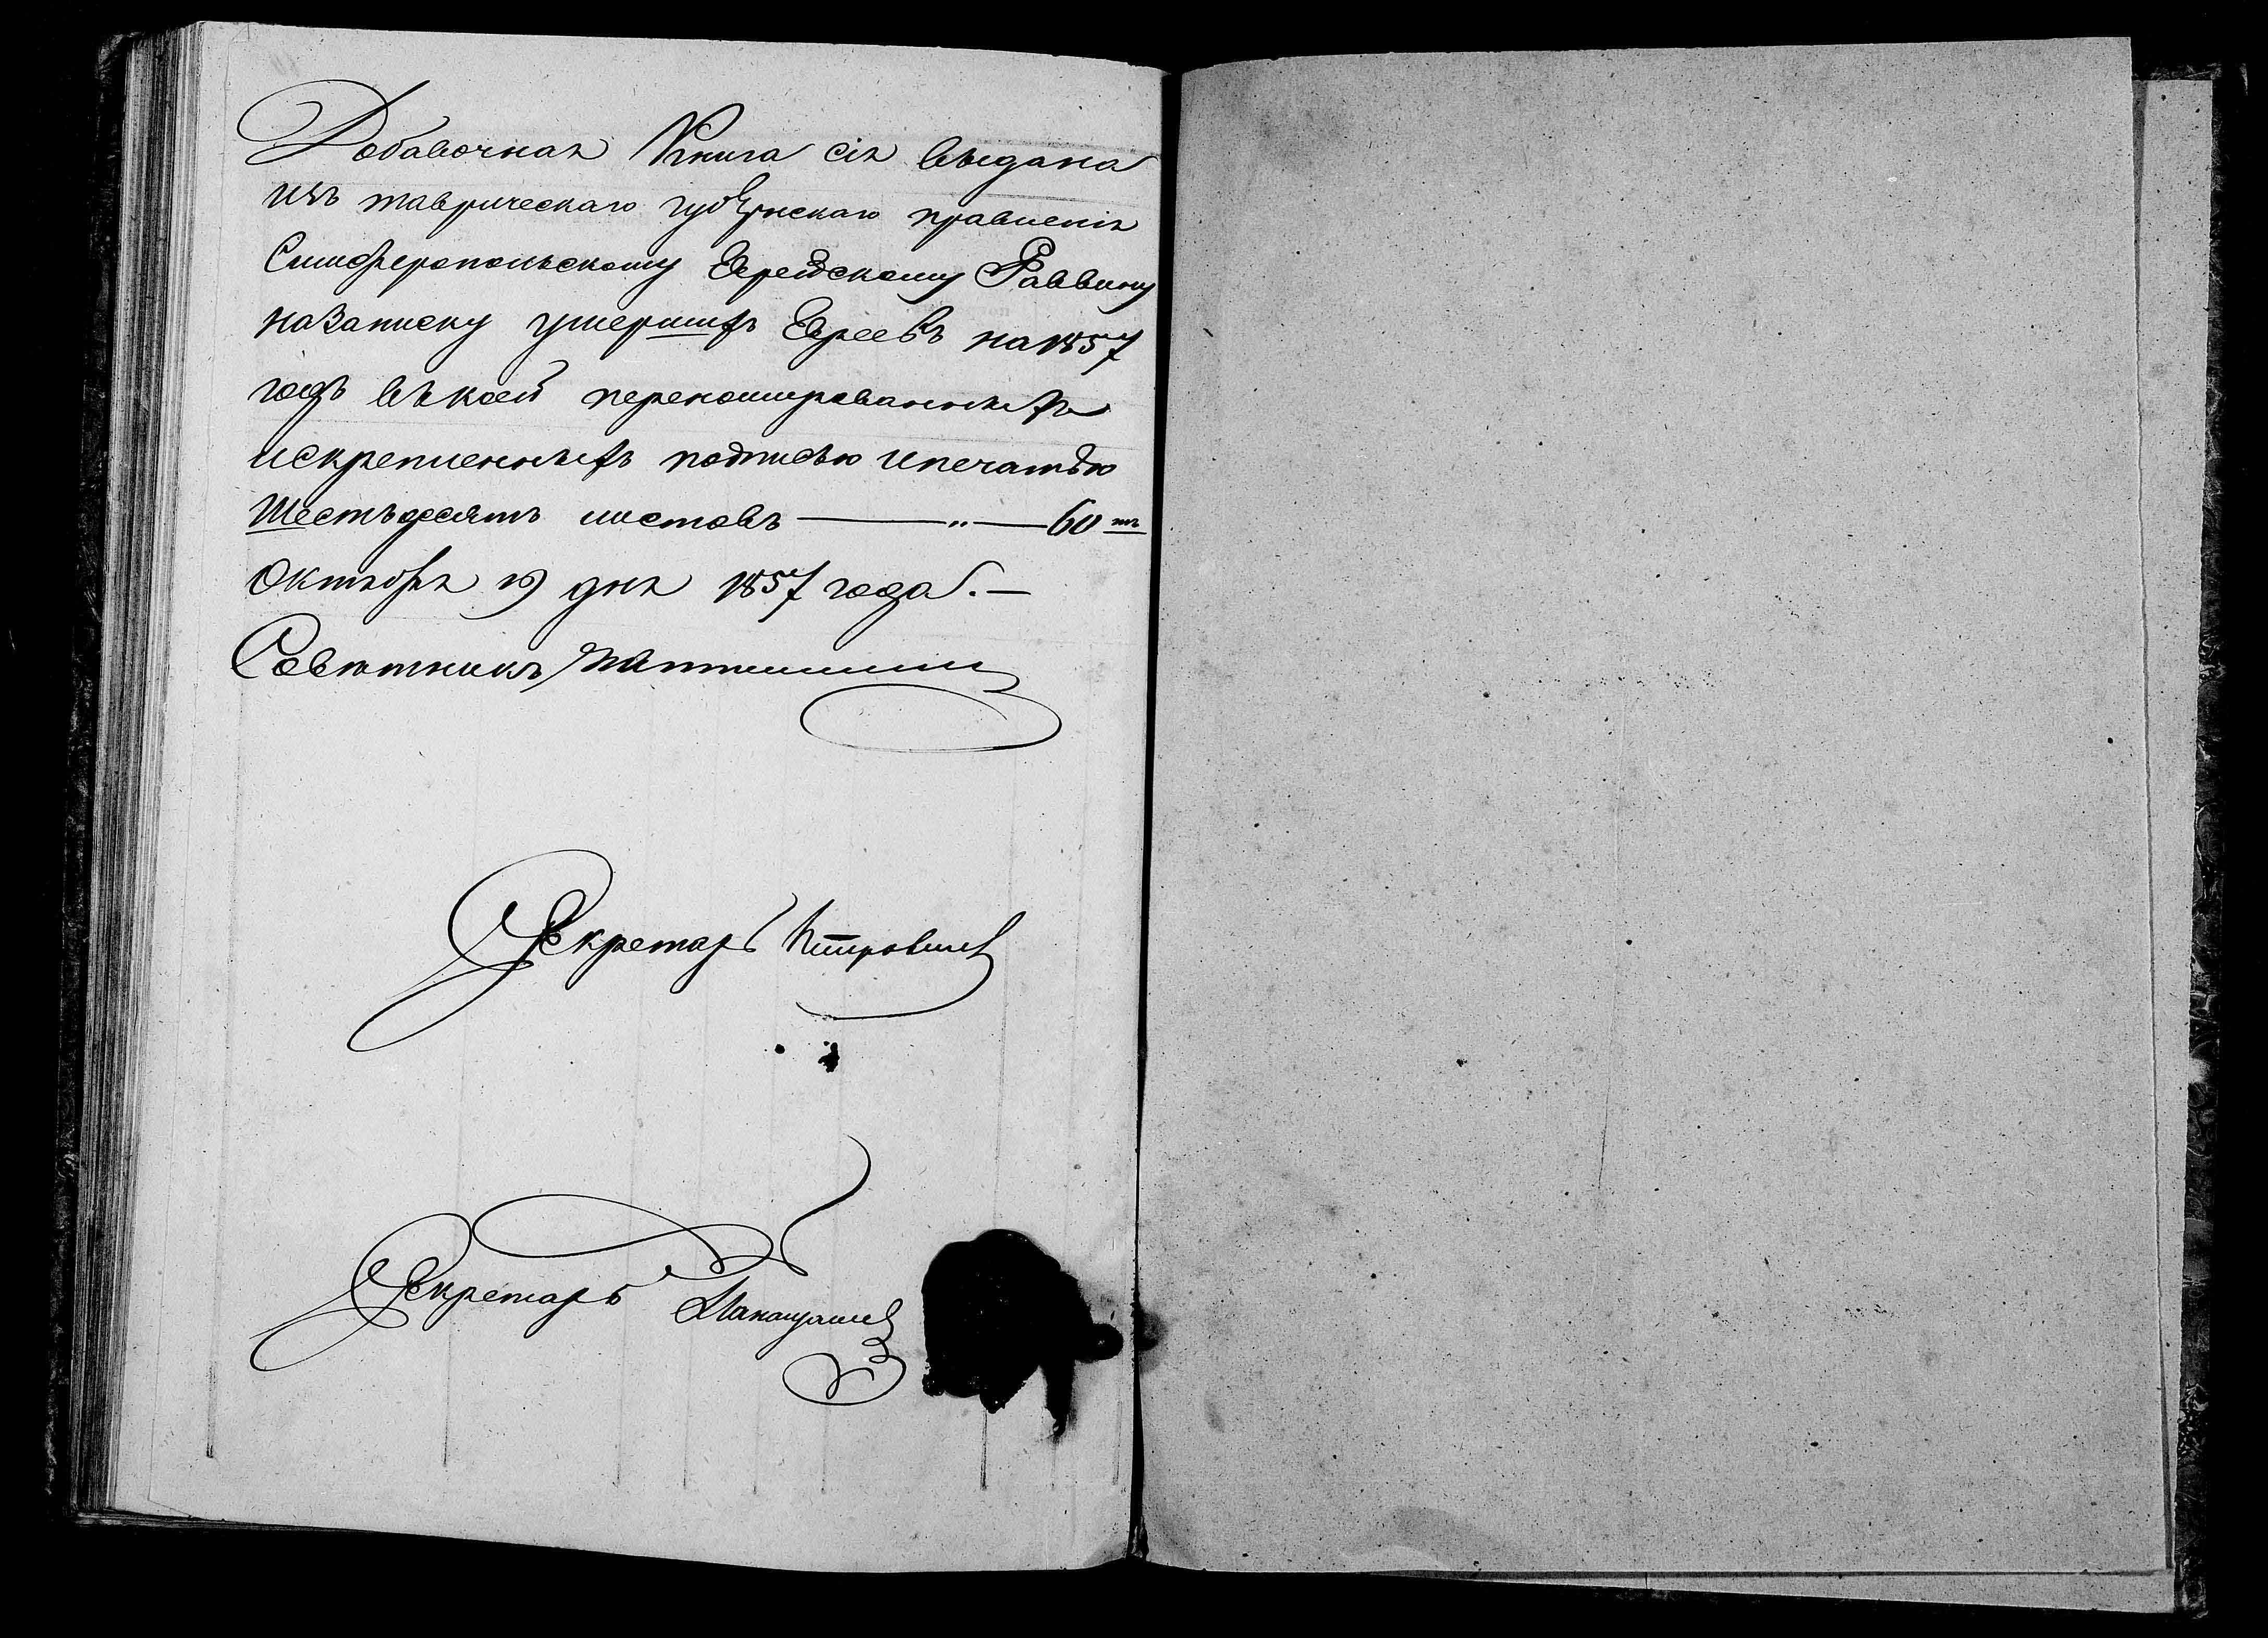 Добавочная Книга сія выдана
изъ таврическаго губернскаго правленія
Симферопольскому Еврейскому Раввину
на записку умершихъ Евреевъ на 1857
годъ въ коей переномерованныхъ
и скрепленныхъ подписью и печатью
Шестьдесятъ листовъ — „ — 60 тъ
Октября 19 дня 1857 года. —
Советникъ
Секретарь Петровский
Секретарь